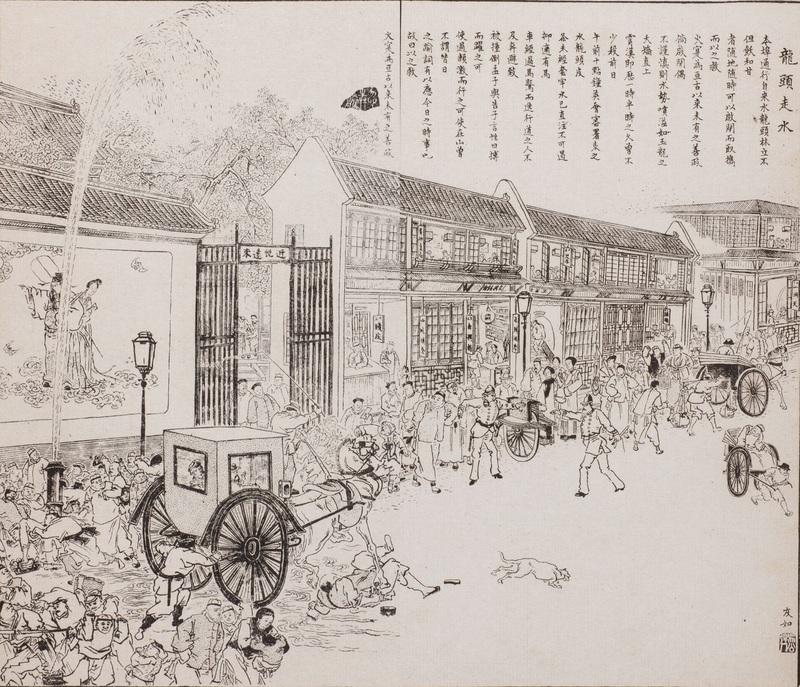 龍頭走水
本埠通行自來水龍頭林立不
者隨地隨時可以啟閉而取攜
而以之救
火災為亙古以來未有之善政
倘啟閉偶
不謹慎則水勢噴溢如玉龍之
夭矯直上
雲漢即歷一時半時之久曾不
少殺前日
午前十點鐘英會審署東之
水龍頭皮
蓋未經套牢水已直注不可遏
抑適有馬
車經過馬驚而逸行道之人不
及奔避致
被撞倒孟子與告子言性曰搏
而躍之可
使過顙激而行之可使在山曾
不謂昔日
之喻詞有以應今日之時事也
故曰以之救
火災為亙古以來未有之善政
近悅遠來
友如